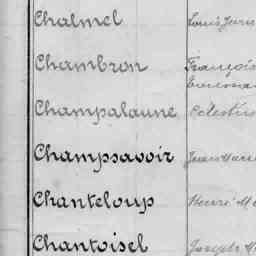 Chalmel Louis
Chambron François
Champalaune Célestin
Champsavoir Jean Marie
Chanteloup
Chantoisel Joseph